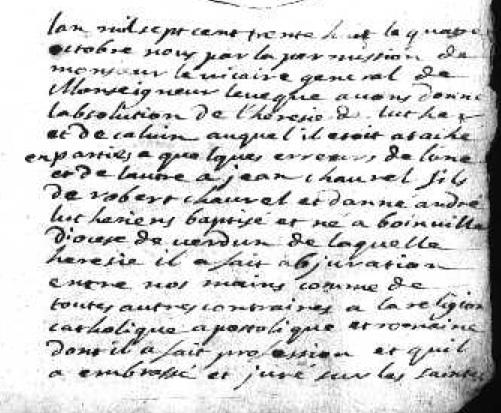 lan mil sept cent trente huit le quatre
octobre nous par la permission de
monsieur le vicaire general de
Monseigneur leveque avons donne
labsolution de lheresie de luther
et de calvin auquel il etoit atache
en parties a quelques erreurs de lune
et de lautre a jean chaurel fils
de robert chaurel et danne andré
lutheriens baptisé et né a boinville
diocese de verdun de laquelle
heresie il a fait abjuration
entre nos mains comme de
toutes autres contraires a la religion
catholique apostolique et romaine
dont il a fait profession et quil
a embrassé et juré sur les saintes